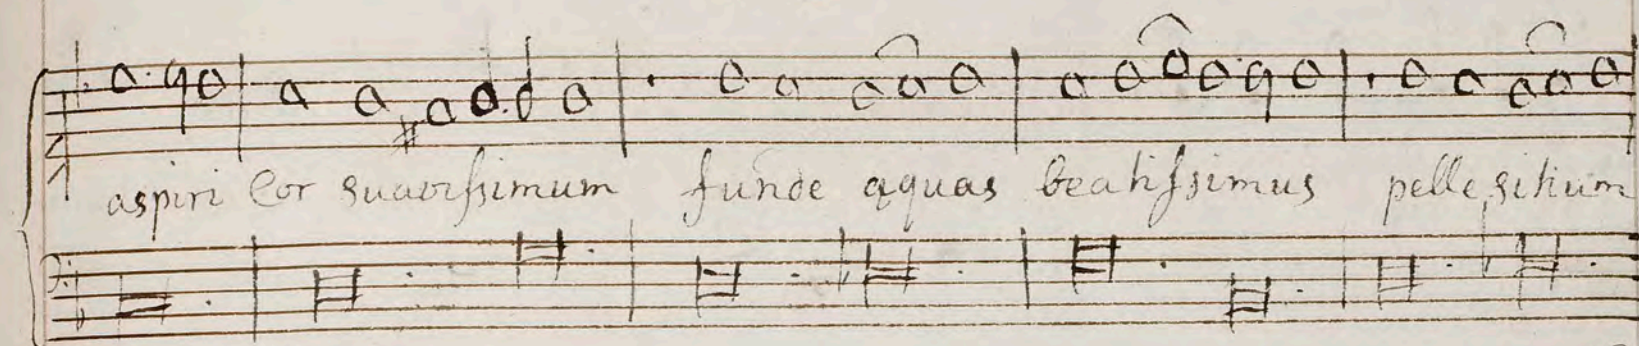 aspiri Cor suavissimum funde aquas beatissimus pelle sitium